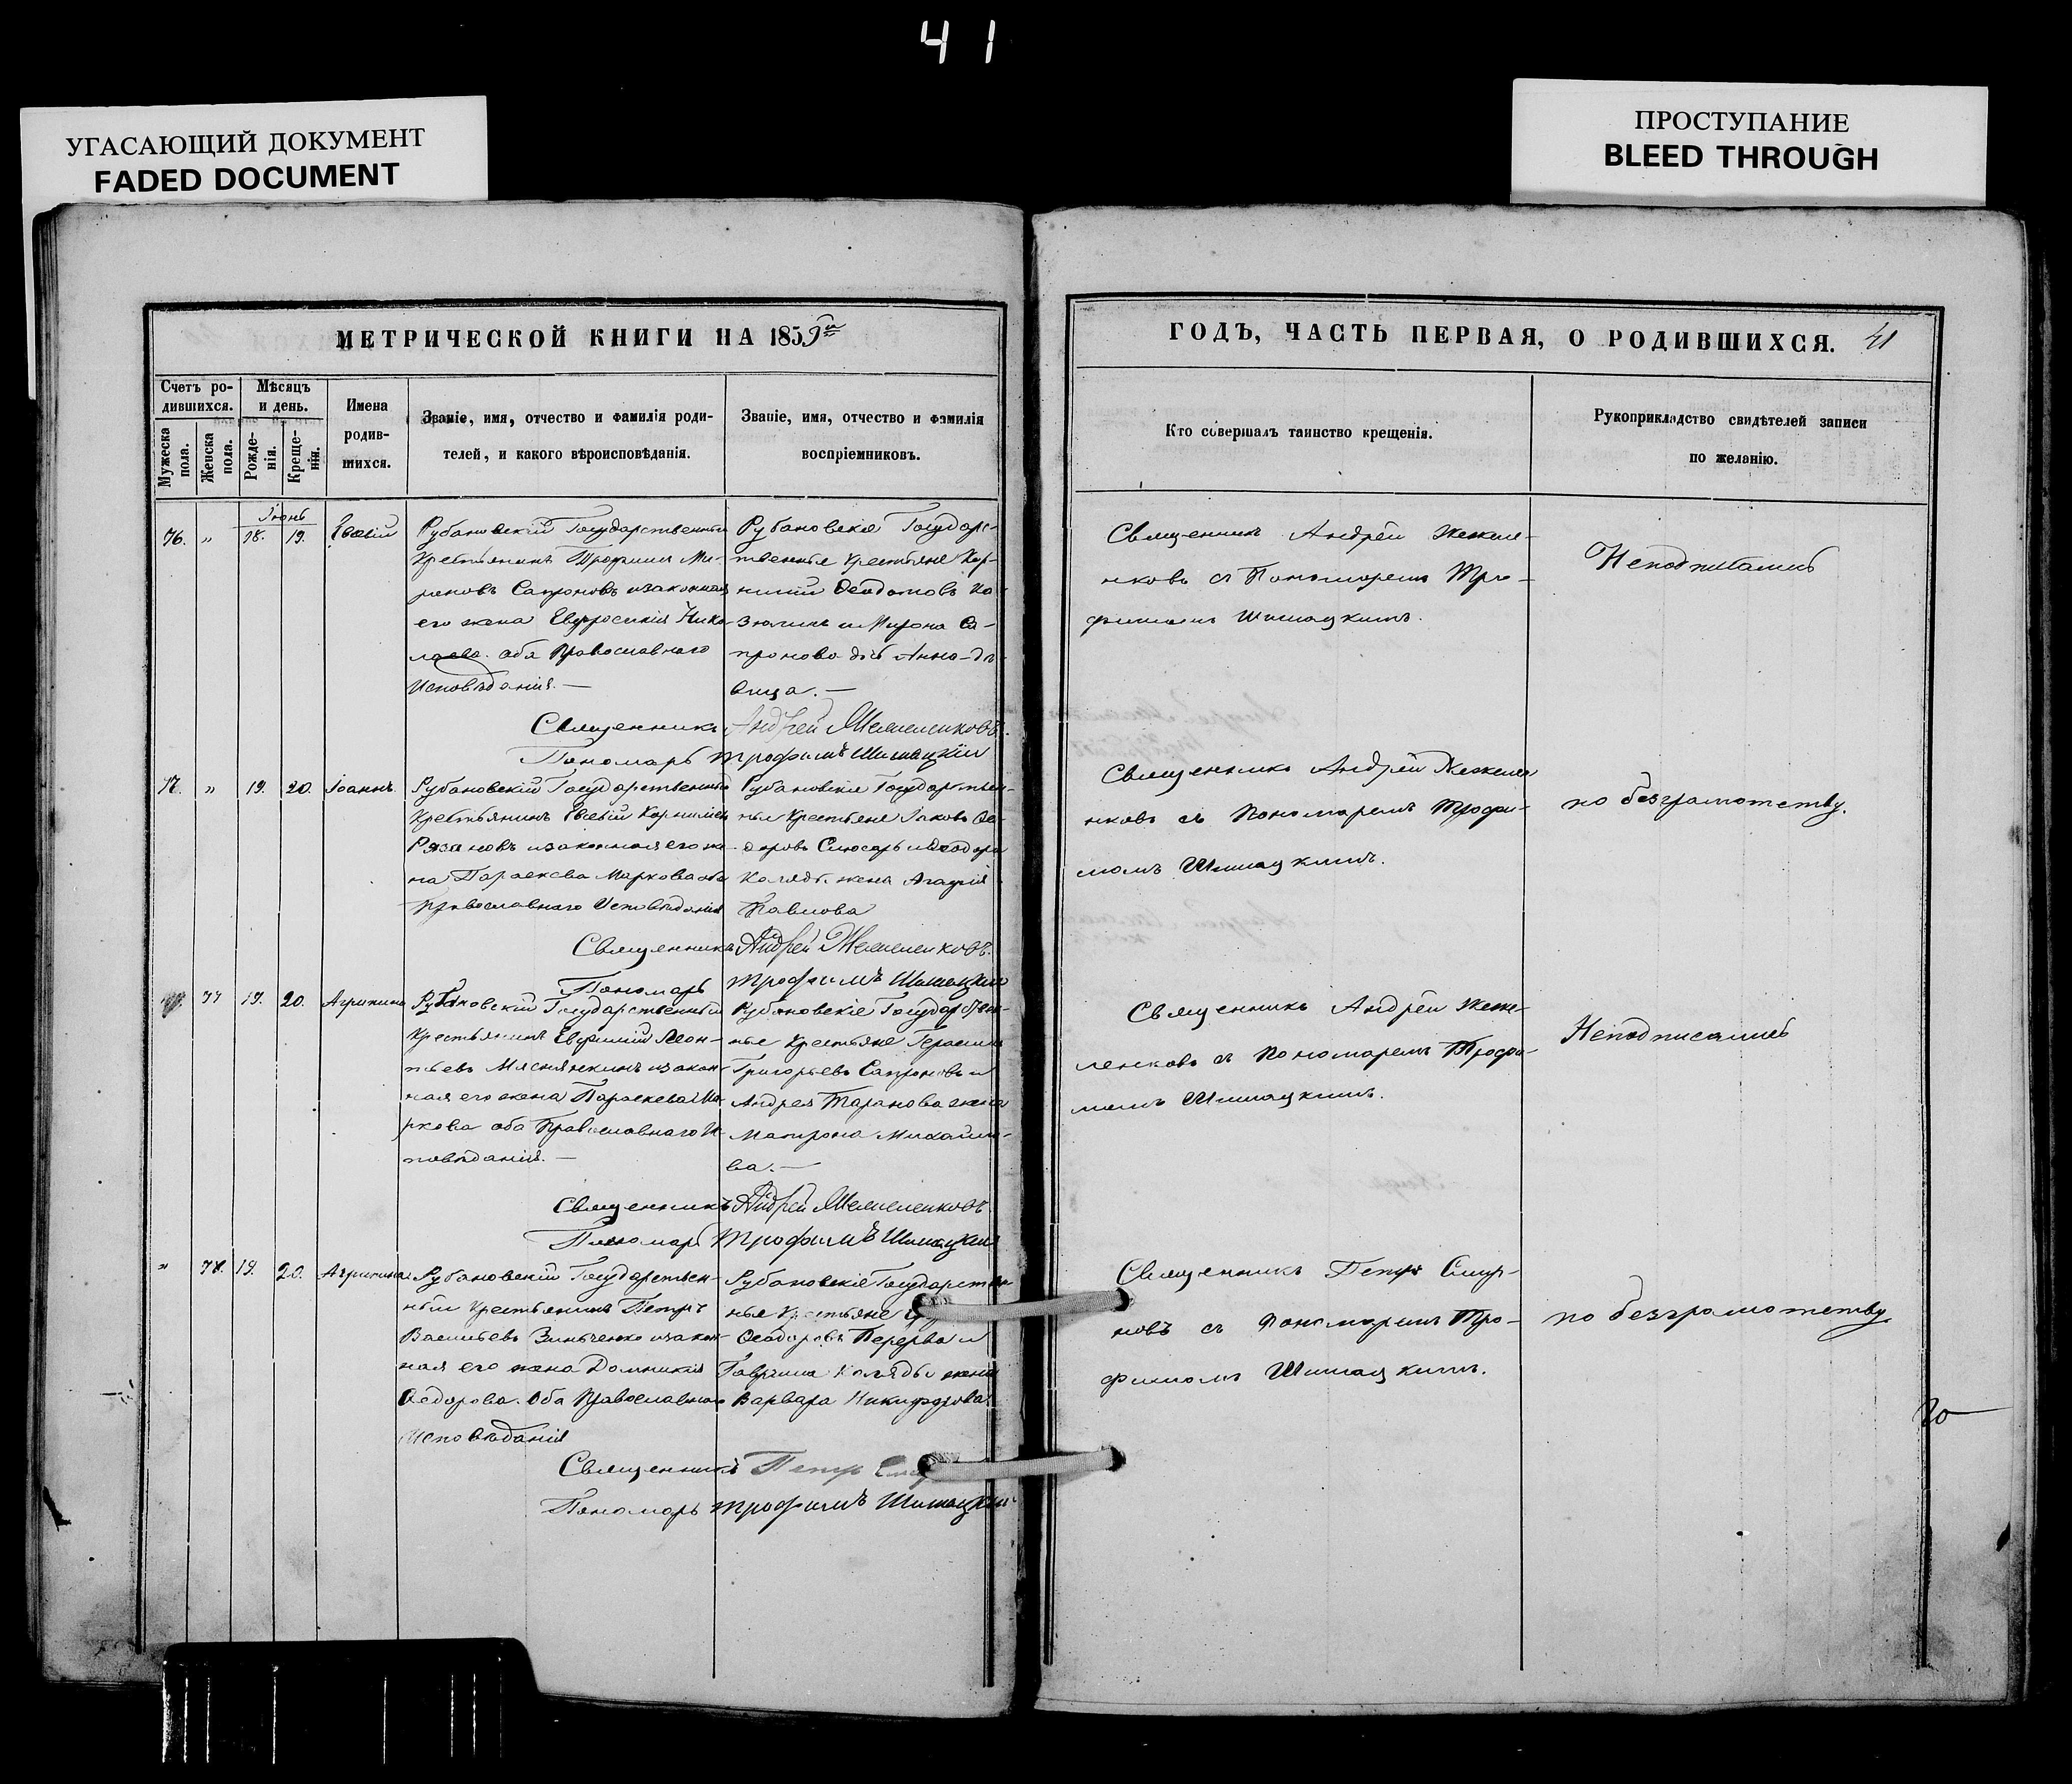 41
УГАСАЮЩИЙ ДОКУМЕНТ
FADED DOCUMENT
ПРОСТУПАНИЕ
BLEED THROUGH
МЕТРИЧЕСКОЙ КНИГИ НА 1859
Счетъ ро-
дившихся.
Мужеска пола.
Женска пола.
Мѣсяцъ
и день.
Рожде-
нія.
Креще-
нія.
Имена
родив-
шихся.
Званіе, имя, отчество и фамилія роди-
телей, и какого вѣроисповѣданія.
Званіе, имя, отчество и фамилія
воспріемниковъ.
Іюнь
76. " 18. 19. Евсевій
Рубановскій Государственный
Крестьянинъ Трофимъ Ми-
роновъ Сапроновъ и законная
его жена Евфросинія Нико-
лаева. оба Православнаго
Исповѣданія. —
Рубановскіе Государс-
твенные Крестьяне Кор-
нилій Ѳеодотовъ Ко-
зюлинъ и Мирона Са-
пронова дочь Анна-дѣ-
вица. —
Священникъ Андрей Жежеленковъ.
Пономарь Трофимъ Шишацкій
77. " 19. 20. Іоаннъ.
Рубановскій Государственный
Крестьянинъ Евсевій
Рязановъ и законная его же-
на Параскева Маркова оба
Православнаго Исповѣданія
Рубановскіе Государствен-
ные Крестьяне Іаковъ Ѳе-
одоровъ Слюсарь и Ѳеодора
Коляды жена Агафія
Павлова
Священникъ Андрей Жежеленковъ.
Пономарь Трофимъ Шишацкій
77 19. 20. Агрипина
Рубановскій Государственный
Крестьянинъ Евфимій Леон-
тьевъ и закон-
ная его жена Параскева Ма-
ркова оба Православнаго И-
сповѣданія. —
Рубановскіе Государствен-
ные Крестьяне Герасимъ
Григорьевъ Сапроновъ и
Андрея Таранова жена
Матрона Михайло-
ва. —
Священникъ Андрей Жежеленковъ.
Пономарь Трофимъ Шишацкій
" 78. 19. 20. Агрипина
Рубановскій Государствен-
ный Крестьянинъ Петръ
Васильевъ Зинченко и закон-
ная его жена Домникія
Ѳедорова. Оба Православнаго
Исповѣданія
Рубановскіе Государствен-
ные Крестьяне
Ѳеодоровъ Перерва и
Гавріила Коляды жена
Варвара Никифорова.
Священникъ Петръ
Пономарь Трофимъ Шишацкій
ГОДЪ, ЧАСТЬ ПЕРВАЯ, О РОДИВШИХСЯ. 41
Кто совершалъ таинство крещенія.
Рукоприкладство свидѣтелей записи
по желанію.
Священникъ Андрей Жежеле-
нковъ съ Пономаремъ Тро-
фимомъ Шишацкимъ.
Неподписались
Священникъ Андрей Жежеле-
нковъ съ Пономаремъ Трофи-
момъ Шишацкимъ.
по безграмотству.
Священникъ Андрей Жеже-
ленковъ съ Пономаремъ Трофи-
момъ Шишацкимъ.
Неподписались
Священникъ Петръ Смир-
новъ съ Пономаремъ Тро-
фимомъ Шишацкимъ.
по безграмотству